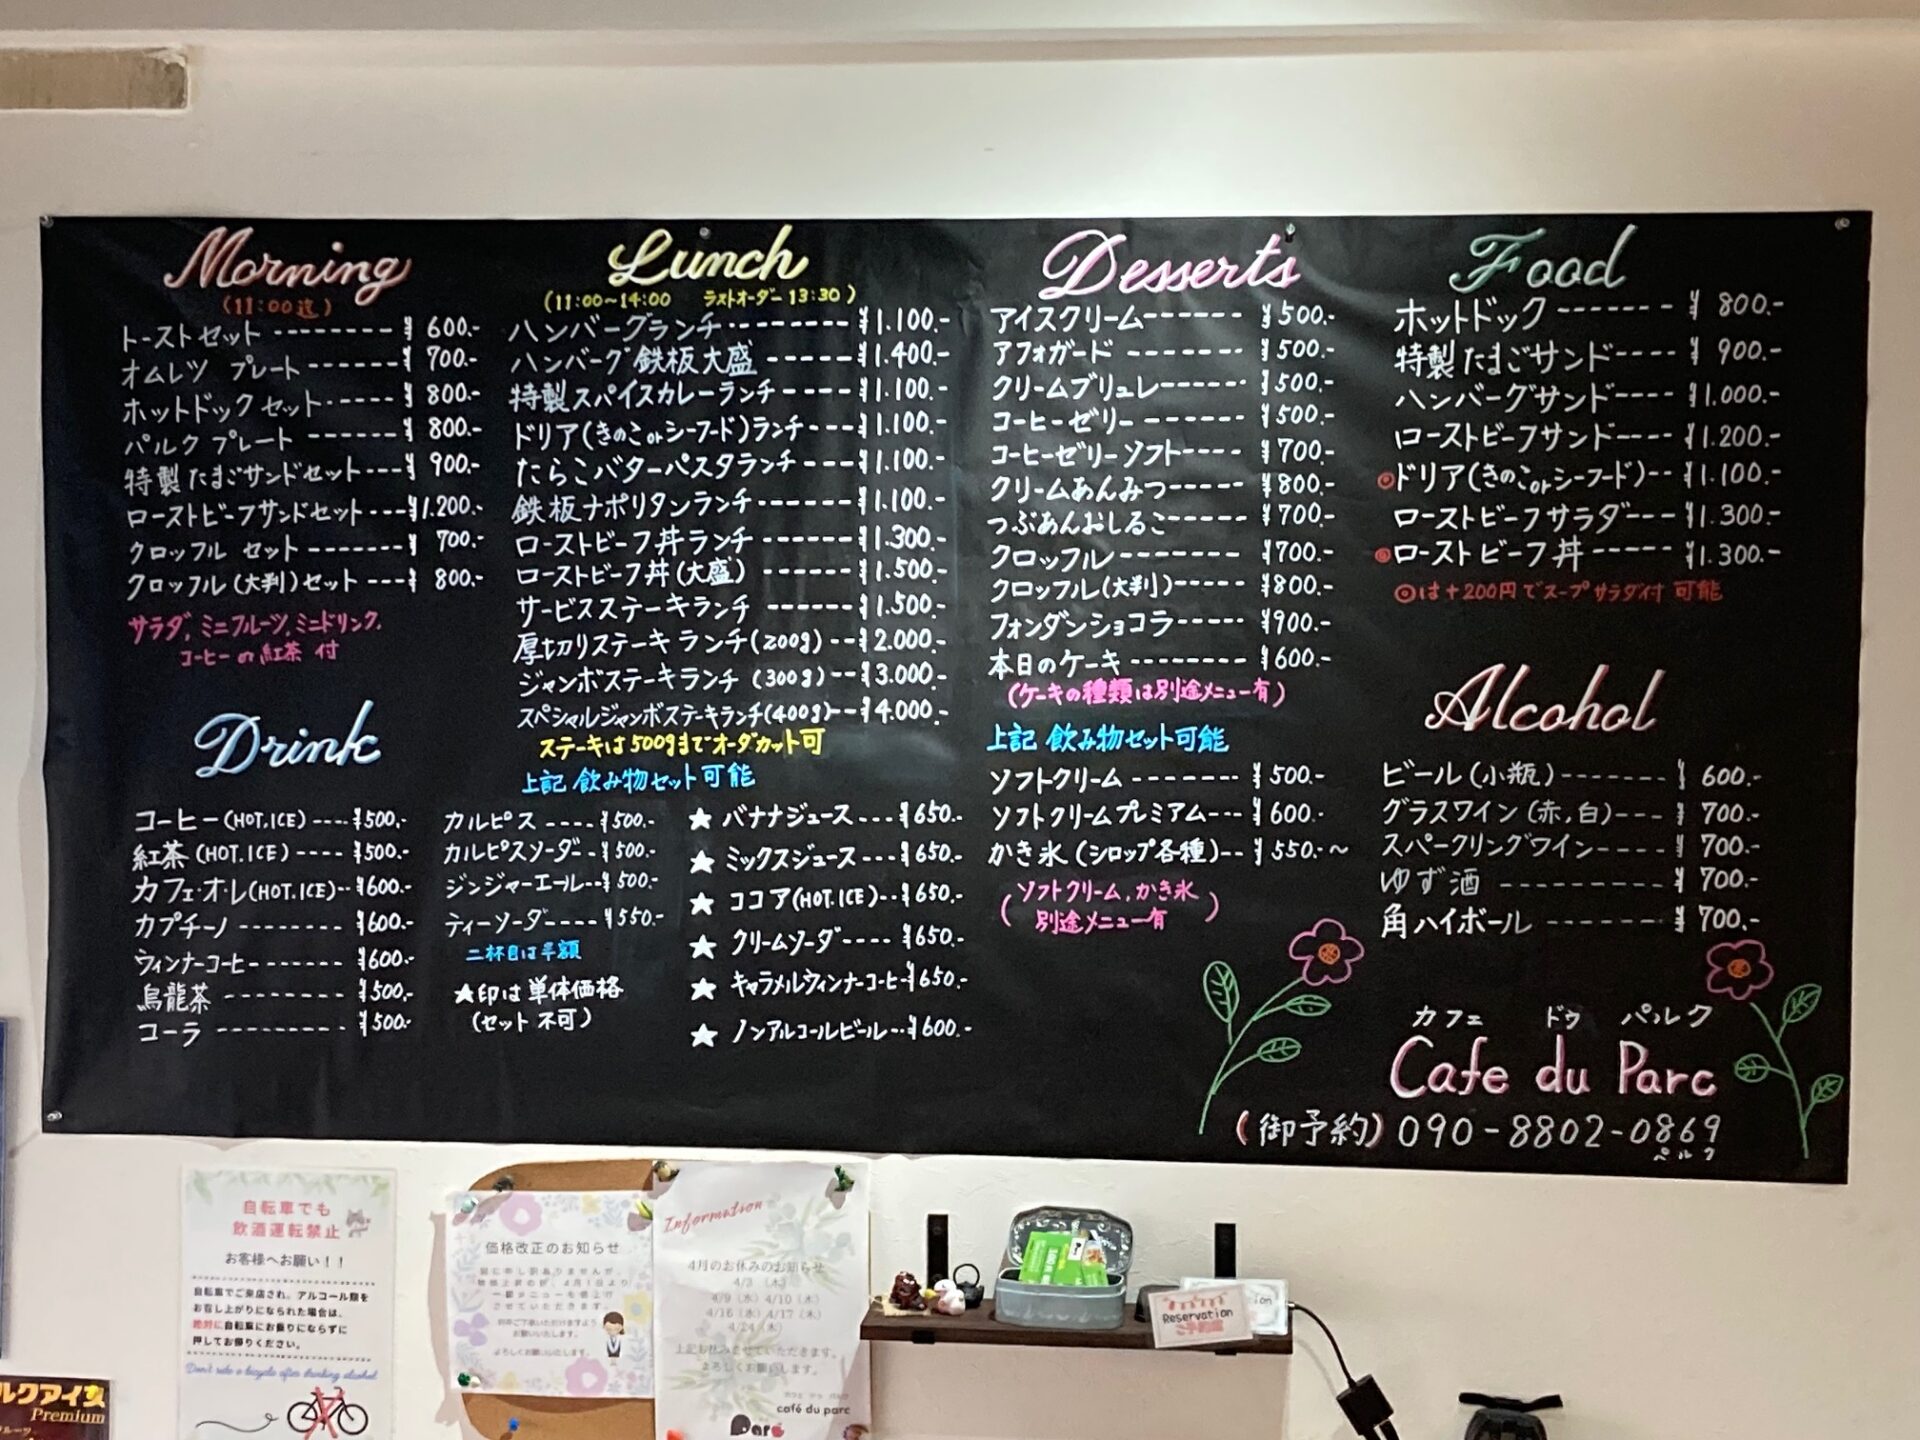 Morning
(11:00迄)
トーストセット -------- ¥600.-
オムレツ プレート ------ ¥700.-
ホットドックセット ---- ¥800.-
パルク プレート ------ ¥800.-
特製たまごサンドセット --- ¥900.-
ローストビーフサンドセット --- ¥1.200.-
クロッフル セット ------ ¥700.-
クロッフル(大判)セット --- ¥800.-
サラダ,ミニフルーツ,ミニドリンク,
コーヒーor紅茶 付
Lunch
(11:00~14:00 ラストオーダー 13:30)
ハンバーグランチ -------- ¥1.100.-
ハンバーグ鉄板大盛 ----- ¥1.400.-
特製スパイスカレーランチ ---- ¥1.100.-
ドリア(きのこorシーフード)ランチ --- ¥1.100.-
たらこバターパスタランチ --- ¥1.100.-
鉄板ナポリタンランチ ------ ¥1.100.-
ローストビーフ丼ランチ ----- ¥1.300.-
ローストビーフ丼(大盛) ----- ¥1.500.-
サービスステーキランチ ------ ¥1.500.-
厚切りステーキランチ(200g) -- ¥2.000.-
ジャンボステーキランチ(300g) -- ¥3.000.-
スペシャルジャンボステーキランチ(400g) -- ¥4.000.-
ステーキは500gまでオーダーカット可
上記 飲み物セット可能
Desserts
アイスクリーム ------ ¥500.-
アフォガード ------- ¥500.-
クリームブリュレ ------ ¥500.-
コーヒーゼリー ------ ¥500.-
コーヒーゼリーソフト ---- ¥700.-
クリームあんみつ ----- ¥800.-
つぶあんおしるこ ----- ¥700.-
クロッフル ------- ¥700.-
クロッフル(大判) ----- ¥800.-
フォンダンショコラ ----- ¥900.-
本日のケーキ -------- ¥600.-
(ケーキの種類は別途メニュー有)
上記 飲み物セット可能
ソフトクリーム ------- ¥500.-
ソフトクリームプレミアム --- ¥600.-
かき氷(シロップ各種) -- ¥550.-~
(ソフトクリーム,かき氷
別途メニュー有)
Food
ホットドック ------ ¥800.-
特製たまごサンド ---- ¥900.-
ハンバーグサンド ---- ¥1.000.-
ローストビーフサンド ---- ¥1.200.-
◎ドリア(きのこorシーフード) -- ¥1.100.-
ローストビーフサラダ --- ¥1.300.-
◎ローストビーフ丼 ----- ¥1.300.-
◎は+200円でスープサラダ付 可能
Drink
コーヒー(HOT.ICE) ---- ¥500.-
紅茶(HOT.ICE) ---- ¥500.-
カフェ・オ・レ(HOT.ICE) -- ¥600.-
カプチーノ -------- ¥600.-
ウィンナーコーヒー ------- ¥600.-
烏龍茶 -------- ¥500.-
コーラ --------- ¥500.-
カルピス ---- ¥500.-
カルピスソーダ -- ¥500.-
ジンジャーエール -- ¥500.-
ティーソーダ ---- ¥550.-
二杯目は半額
★印は単体価格
(セット不可)
★ バナナジュース --- ¥650.-
★ ミックスジュース --- ¥650.-
★ ココア(HOT.ICE) -- ¥650.-
★ クリームソーダ ---- ¥650.-
★ キャラメルウィンナーコーヒー ¥650.-
★ ノンアルコールビール -- ¥600.-
Alcohol
ビール(小瓶) ------- ¥600.-
グラスワイン(赤,白) --- ¥700.-
スパークリングワイン ---- ¥700.-
ゆず酒 --------- ¥700.-
角ハイボール ------ ¥700.-
カフェ ドゥ パルク
Cafe du Parc
(御予約) 090-8802-0869
パルク
自転車でも
飲酒運転禁止
お客様へお願い!!
自転車でご来店され、アルコール類を
お召し上がりになられた場合は、
絶対に自転車にお乗りにならずに
押してお帰りください。
Don't ride a bicycle after drinking alcohol
価格改正のお知らせ
誠に申し訳ありませんが、
物価上昇の折、4月1日より
一部メニューを値上げ
させていただきます。
何卒ご了承いただけますよう
お願いいたします。
よろしくお願いいたします。
Information
4月のお休みのお知らせ
4/3 (木)
4/9 (水) 4/10 (木)
4/16 (水) 4/17 (木)
4/24 (木)
上記お休みさせていただきます。
よろしくお願いします。
カフェ ドゥ パルク
café du parc
Parc
Reservation
ご予約席
ルクアイス
Premium